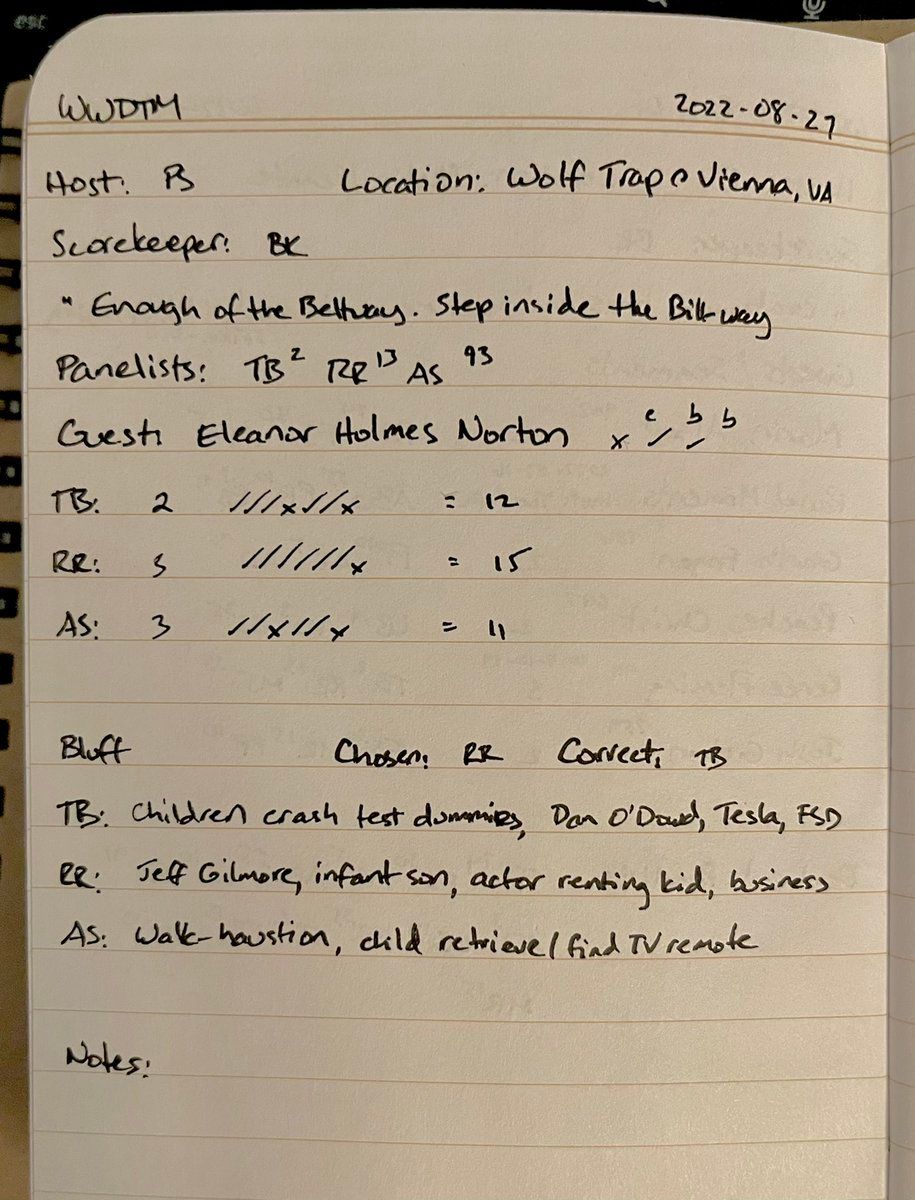 esc
WWDTM 2022-08-27
Host: PS Location: Wolf Trap Vienna, VA
Scorekeeper: BK
" Enough of the Beltway. Step inside the Bill-way
Panelists: TB² RR¹³ AS ⁹³
Guest: Eleanor Holmes Norton x ✓ c ✓ b b
TB: 2 ///x//x = 12
RR: 3 //////x = 15
AS: 3 //x//x = 11
Bluff Chosen: RR Correct: TB
TB: Children crash test dummies, Dan O'Dowd, Tesla, FSD
RR: Jeff Gilmore, infant son, actor renting kid, business
AS: Walk-haustion, child retrieve/find TV remote
Notes: